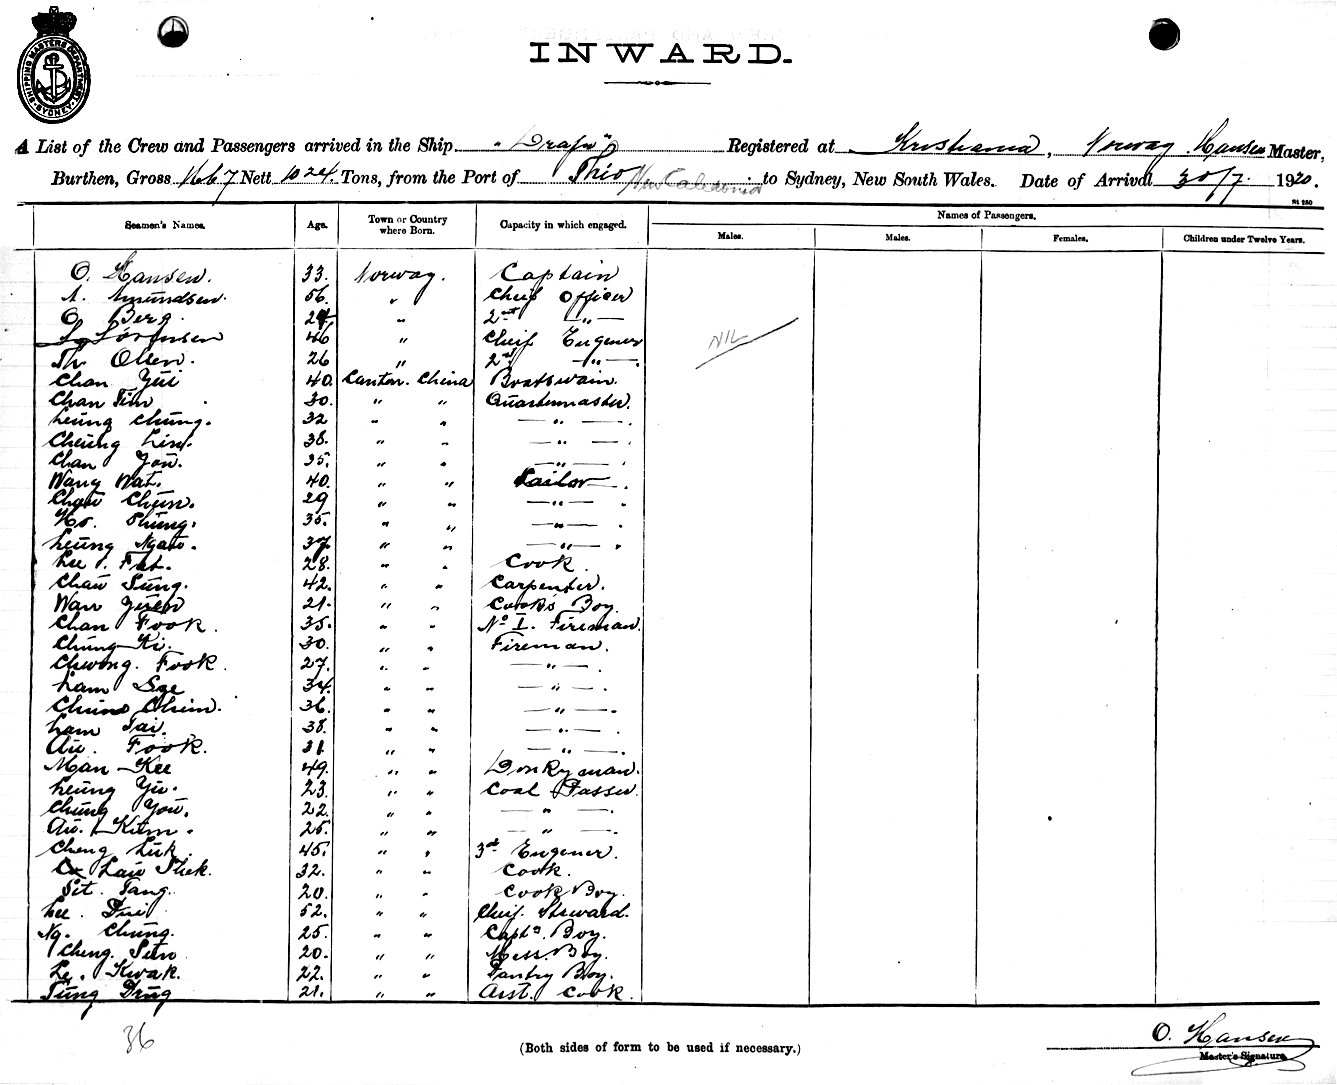 SHIPPING MASTERS DEPARTMENT
SYDNEY
INWARD.
A List of the Crew and Passengers arrived in the Ship "Drafn" Registered at Kristiania, Norway Hansen Master,
Burthen, Gross 1667 Nett 1024 Tons, from the Port of Thio New Caledonia to Sydney, New South Wales. Date of Arrival 30/7 1920.
St 250
Seamen's Names. Age. Town or Country where Born. Capacity in which engaged. Names of Passengers.
Males. Males. Females. Children under Twelve Years.
O. Hansen. 33. Norway. Captain
A. Amundsen. 56. " Cheif Officer
O. Berg. 24 " 2nd —"—
Sørensen 46 " Cheif Engener
NIL
Th. Olsen. 26 " 2nd —"—.
Chan Yui 40. Canton. China Boatswain.
Chan Tim 30. " " Quartermaster.
Leung Chung. 32 " " — " —.
Cheung Lin. 38. " " — " —.
Chan You. 35. " " — " —.
Wang Wat. 40. " " Sailor —.
Chau Chun. 29 " " — " —.
Ho. Shung. 35. " " — " —.
Leung Ngato. 37. " " — " —.
Lee. Fat. 28. " " Cook.
Chau Sung. 42. " " Carpenter.
Wan Yuen 21. " " Cook's Boy.
Chan Fook. 35. " " No I. Fireman.
Chung Ki. 30. " " Fireman.
Chwong. Fook. 27. " " — " —.
Lam Sze 34. " " — " —.
Chun Chim. 36. " " — " —.
Lam Tai. 38. " " — " —.
Au. Fook. 31. " " — " —.
Man Kee 49. " " Donkyman.
Leung Yu. 23. " " Coal Passer
Chung You. 22. " " — " —.
Au. Kum. 25. " " — " —.
Cheng Luk. 45. " " 3rd Engener.
Lau Shek. 32. " " Cook.
Sit. Tang. 20. " " Cook Boy.
Lee. Dui 52. " " Cheif. Steward.
Ng. Chung. 25. " " Captn. Boy.
Cheng Sun 20. " " Mess. Boy.
Le. Kwak. 22. " " Pantry Boy.
Tung Drug 21. " " Asst. Cook.
36
(Both sides of form to be used if necessary.)
O. Hansen
Master's Signature.